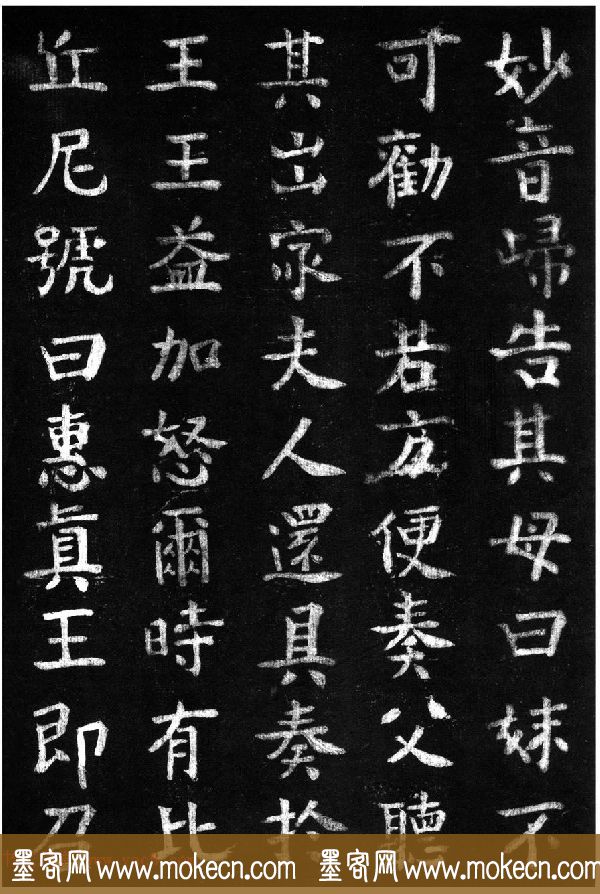 妙音歸告其母曰妹不
可勸不若方便奏父聽
其出家夫人還具奏於
王王益加怒爾時有比
丘尼號曰惠真王即召
墨客网 www.mokecn.com 墨客网 www.mokecn.com